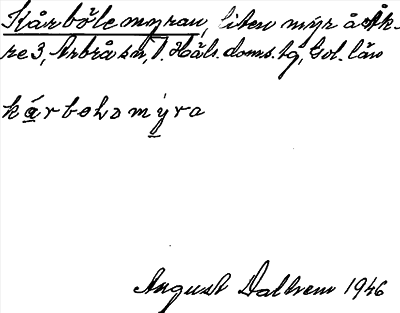 Kårbölemyran, liten myr å Åk-
re 3, Arbrå sn, V. Häls. doms. tg, Gvl. län
kárbolomýra
August Dalhem 1946